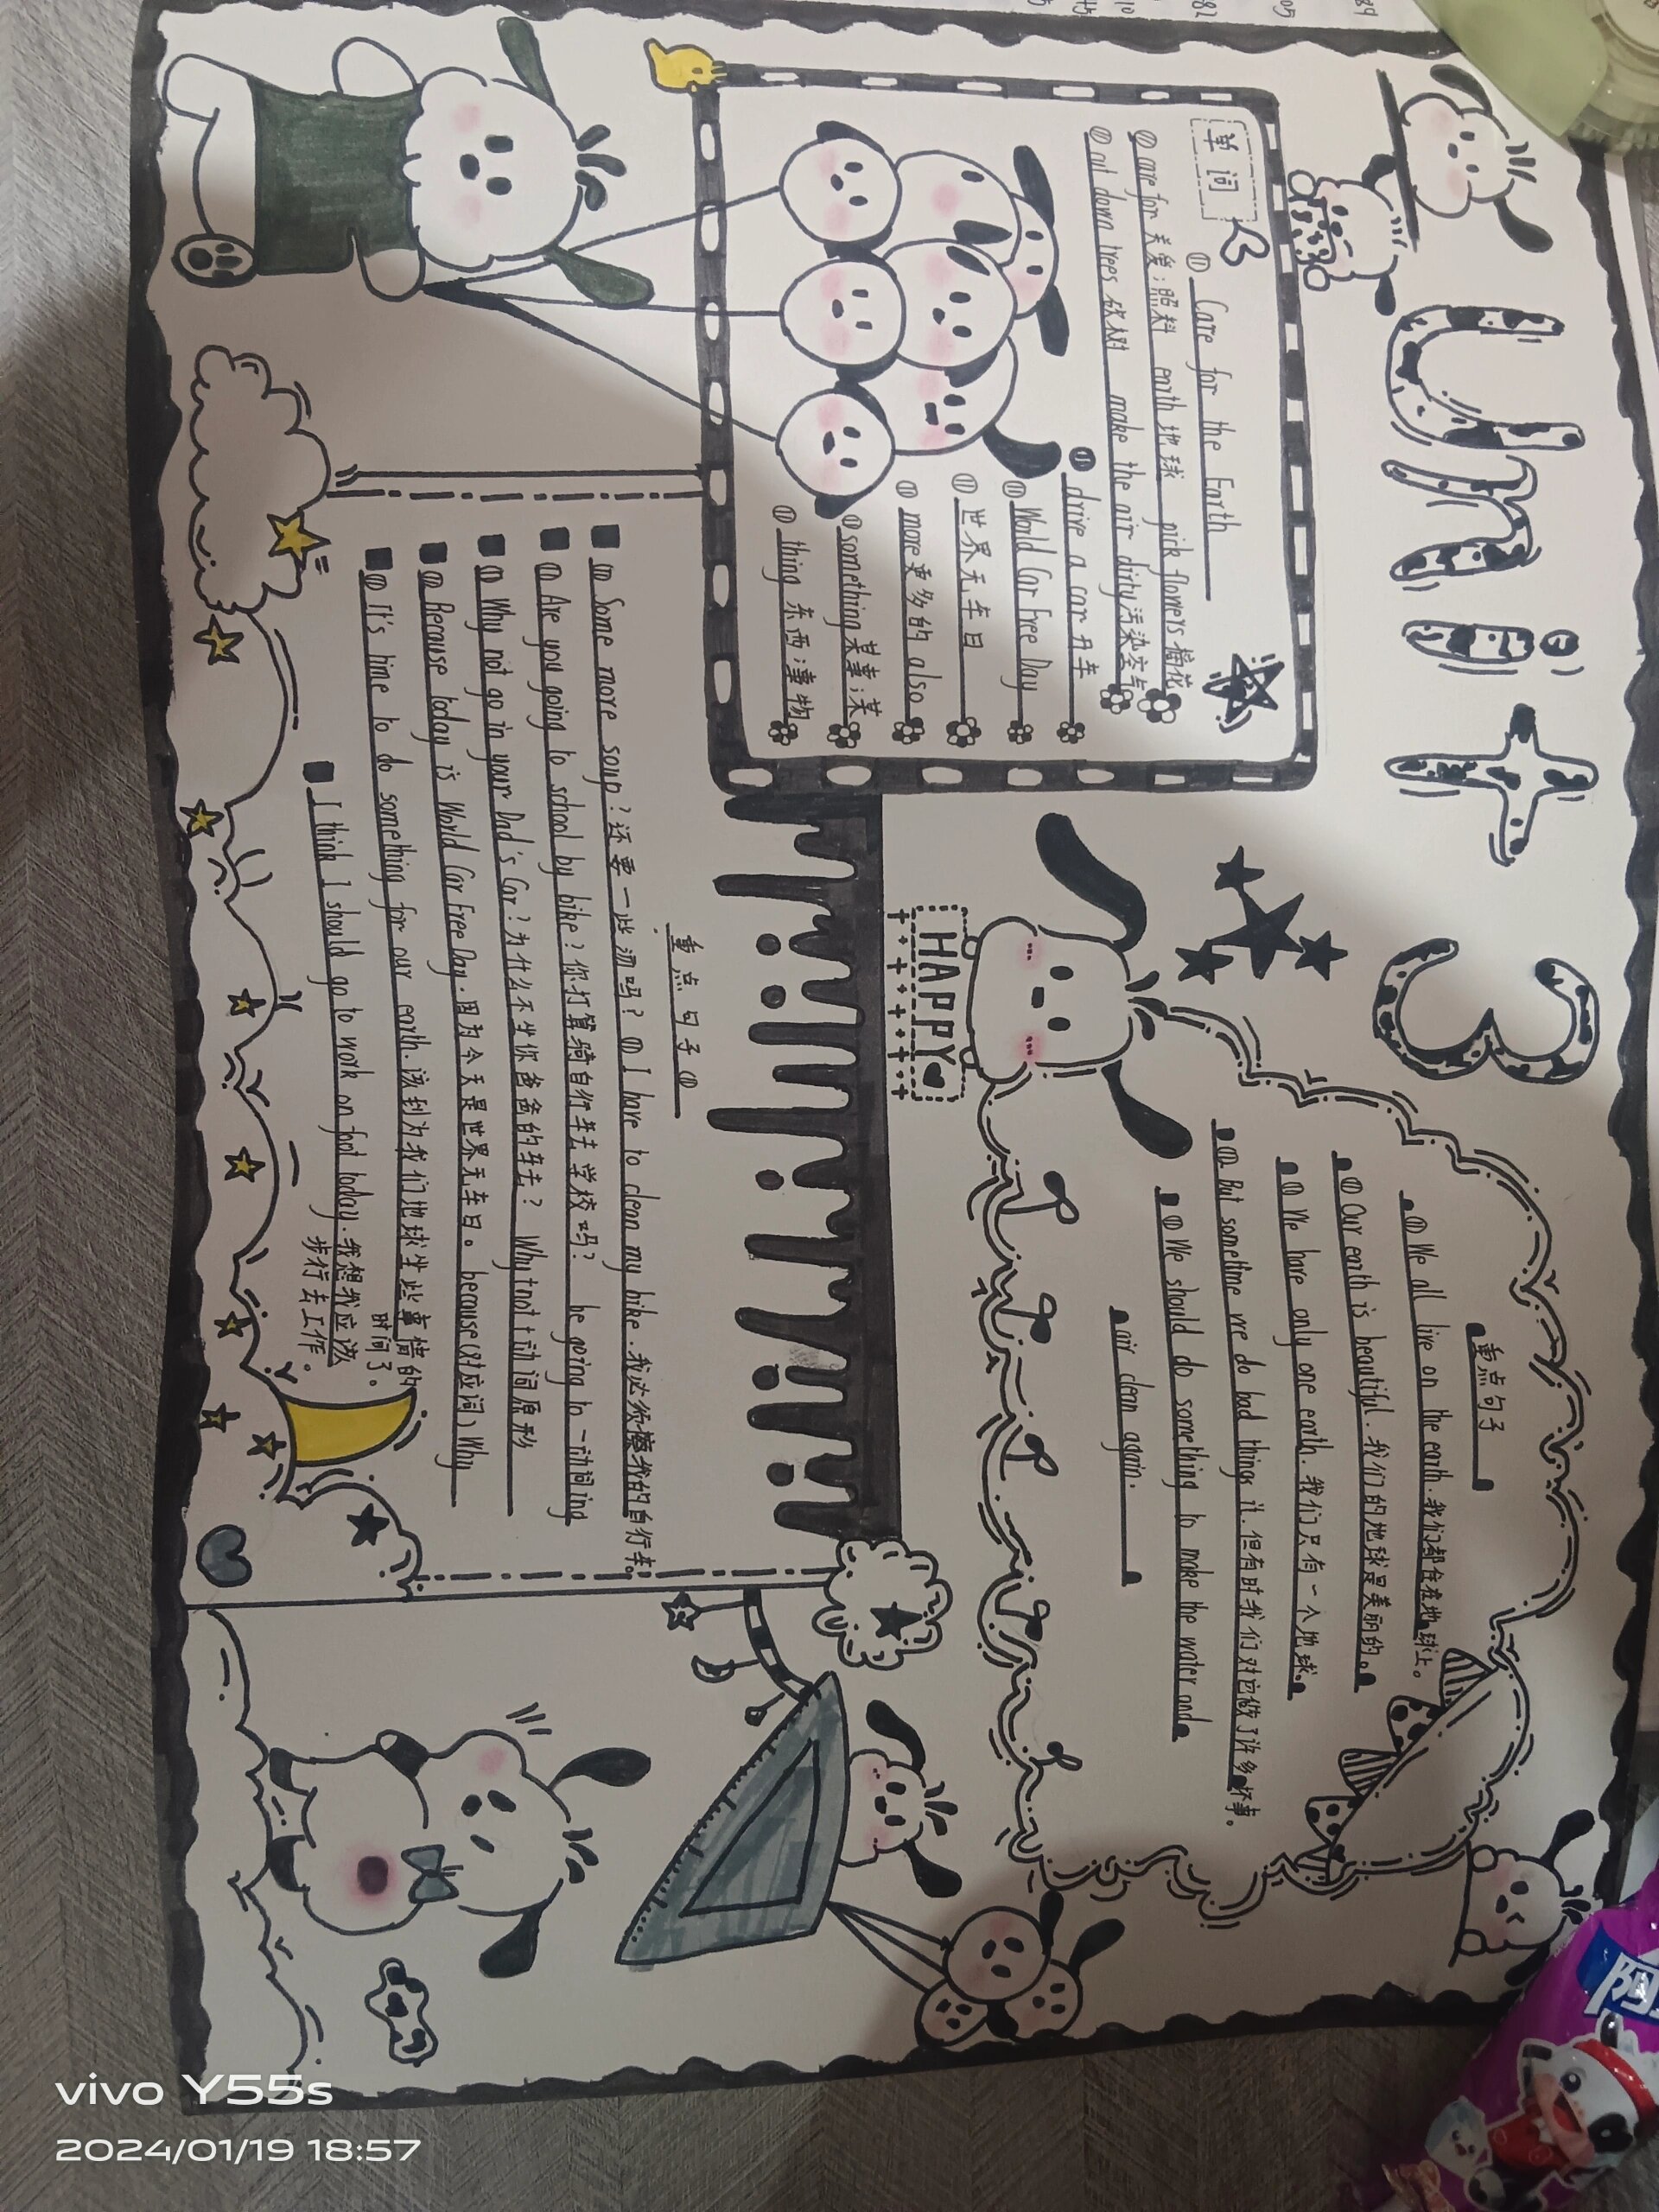 Unit 3
单词
① Care for the Earth
② care for 关爱;照料 earth 地球 pick flowers 摘花
② cut down trees 砍树 make the air dirty 污染空气
① drive a car 开车
① World Car Free Day
① 世界无车日
① more 更多的 also
① something 某事;某
① thing 东西;事物
重点句子
① We all live on the earth. 我们都住在地球上。
① Our earth is beautiful. 我们的地球是美丽的。
① We have only one earth. 我们只有一个地球。
①. But sometime we do bad things it. 但有时我们对它做了许多坏事。
① We should do something to make the water and
air clean again.
HAPPY
重点句子①
① Some more soup? 还要一些汤吗? ① I have to clean my bike. 我必须擦我的自行车。
① Are you going to school by bike? 你打算骑自行车去学校吗? be going to 一动词ing
① Why not go in your Dad's Car? 为什么不坐你爸爸的车去? Why+not+动词原形
① Because today is World Car Free Day. 因为今天是世界无车日。 because(对应词) Why
① It's hime to do something for our earth. 该到为我们地球做些事情的
时间了。
I think I should go to work on foot today. 我想我应该
步行去工作.
阿
vivo Y55s
2024/01/19 18:57